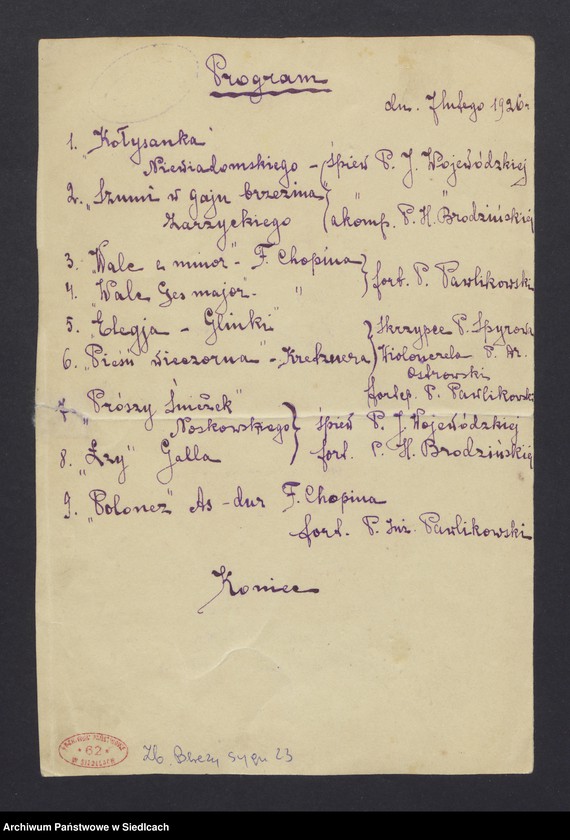 Program
dn. 7 lutego 1926 r
1. „Kołysanka"
Niewiadomskiego - śpiew P. J. Wojewódzkiej
2. „Szumi w gaju brzezina" " "
Zarzyckiego akomp. P. H. Brodzińskiej
3. „Walc a minor" - F. Chopina
4. „Walc Ges major" - " fort. P. Pawlikowski
5. „Elegja - Glinki" Skrzypce P. Spyrow
6. „Pieśń wieczorna" - Kretzmera Wiolonczela P. Dr.
Ostrowski
fortep. P. Pawlikowski
7. „Prószy Śnieżek"
Noskowskiego śpiew P. J. Wojewódzkiej
8. „Łzy" Galla fort. P. H. Brodzińskiej
9. „Polonez" As-dur F. Chopina
fort. P. Inż. Pawlikowski
Koniec
ARCHIWUM PAŃSTWOWE
* 62 *
W SIEDLCACH
Zb. sygn 23
Archiwum Państwowe w Siedlcach